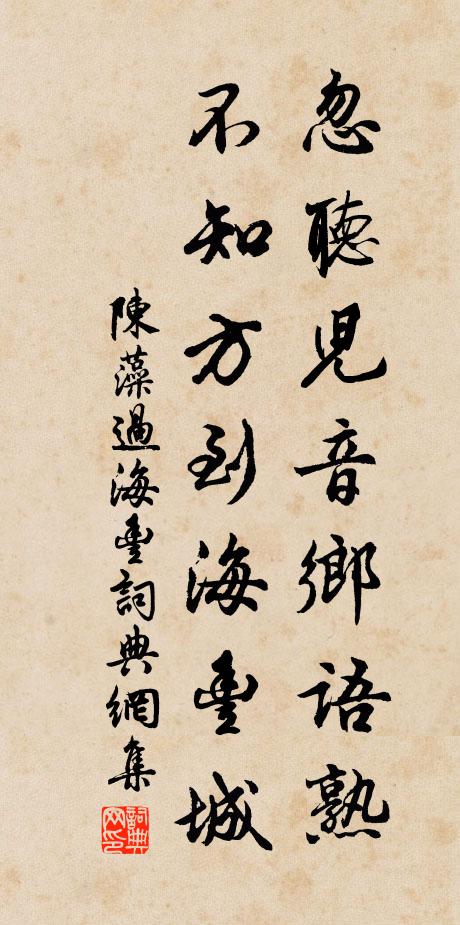 忽聽児音鄉語熟
不知方到海豊城
陳藻過海豊詞典網集
詞典網印